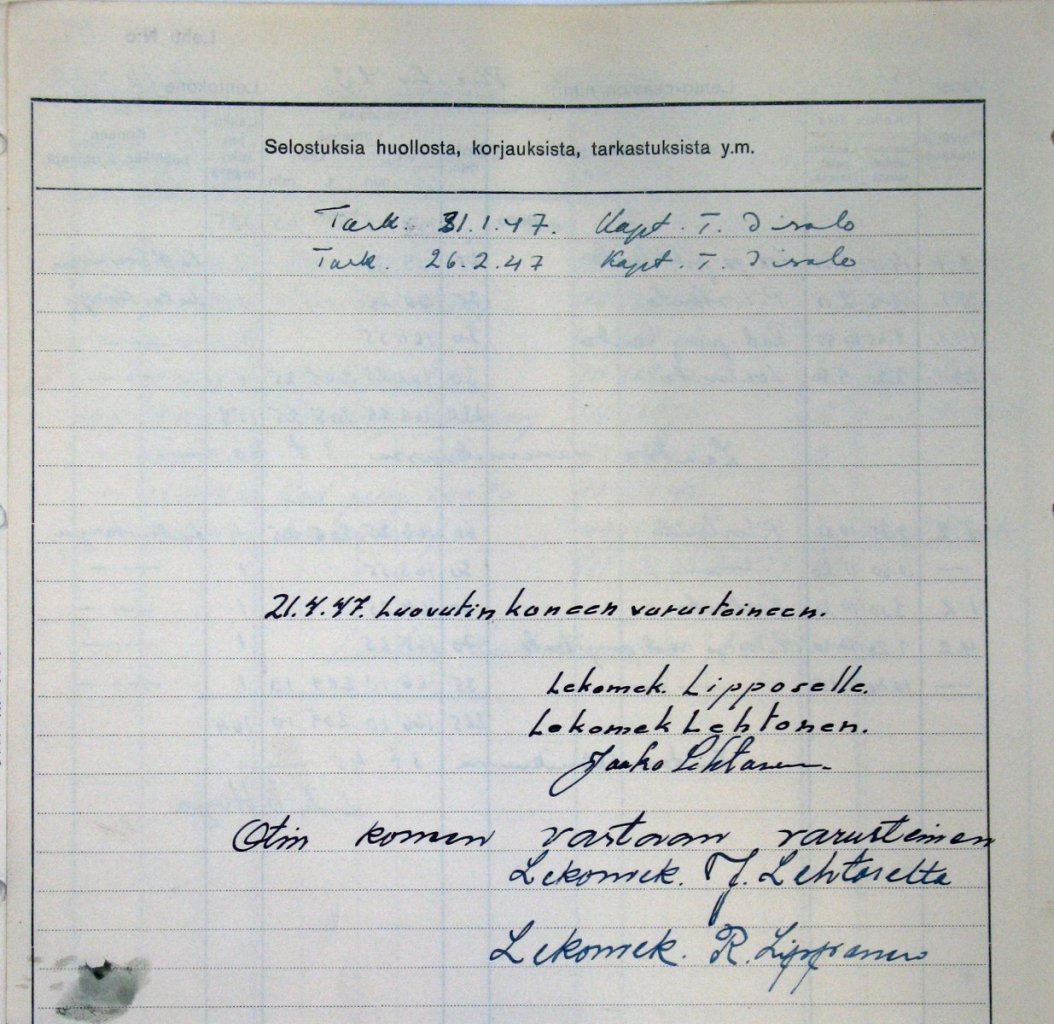 Selostuksia huollosta, korjauksista, tarkastuksista y.m.
Tark. 31.1.47. Kapt. T. Iisalo
Tark. 26.2.47 Kapt. T. Iisalo
21.4.47. Luovutin koneen varustaineen.
Lekomek. Lipposelle.
Lekomek Lehtonen.
Jaako Lehtonen
Otin konen vastaan varusteinen
Lekomek. J. Lehtoselta
Lekomek. R. Lipponen